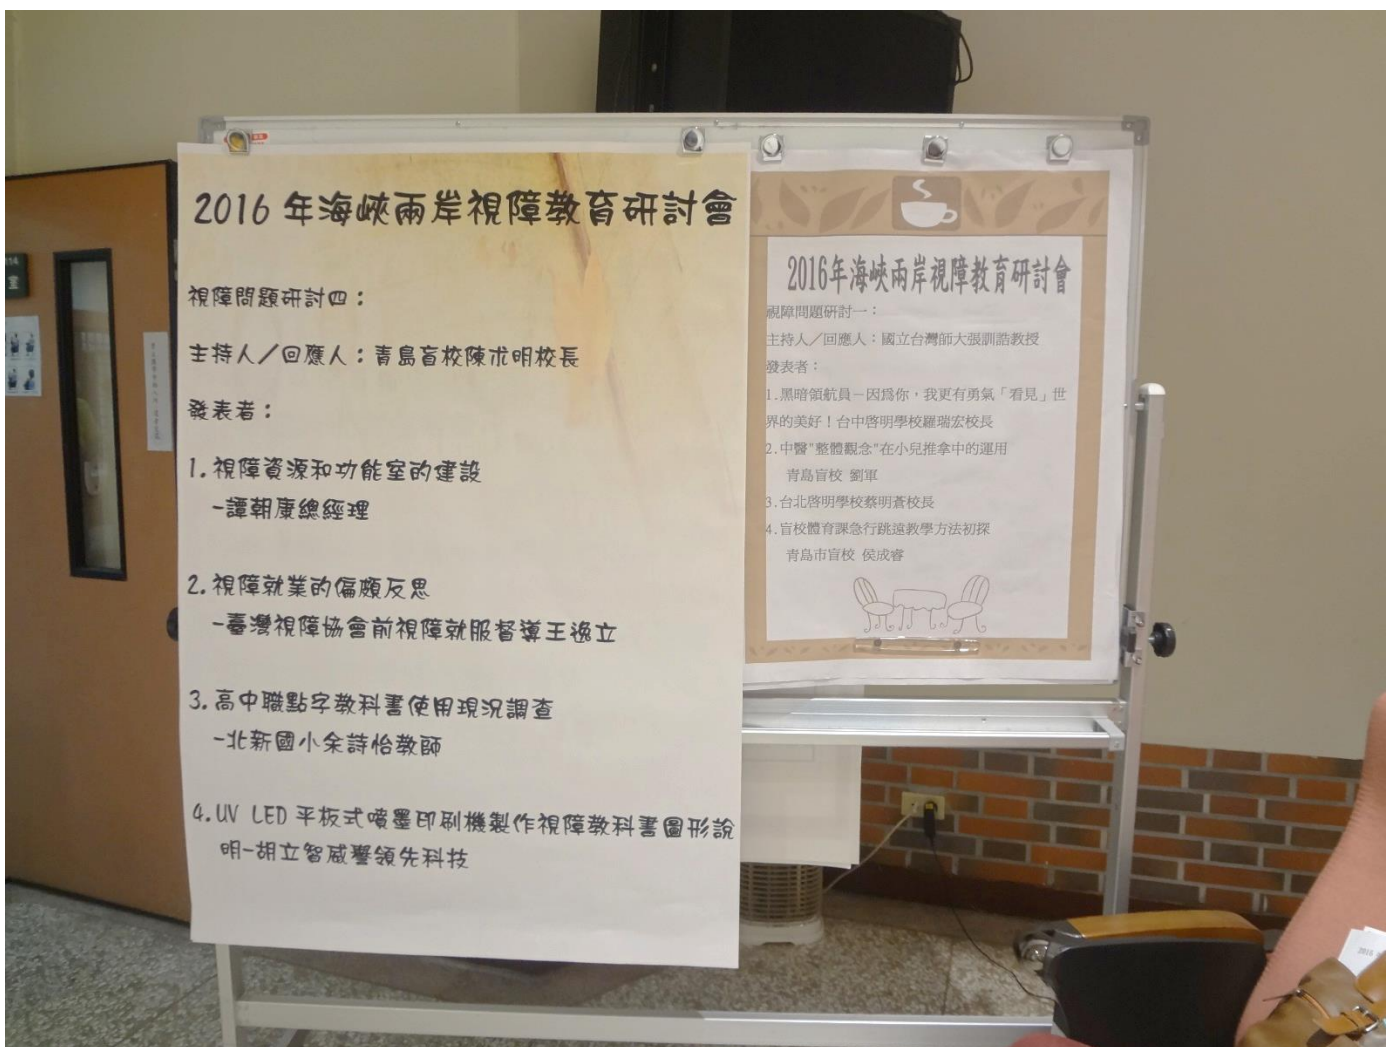 2016 年海峽兩岸視障教育研討會
視障問題研討四：
主持人／回應人：青島盲校陳朮明校長
發表者：
1.視障資源和功能室的建設
-譚朝康總經理
2.視障就業的偏頗反思
-臺灣視障協會前視障就服督導王逸立
3.高中職點字教科書使用現況調查
-北新國小余詩怡教師
4.UV LED 平板式噴墨印刷機製作視障教科書圖形說
明-胡立智威譽領先科技
2016年海峽兩岸視障教育研討會
視障問題研討一：
主持人／回應人：國立台灣師大張訓誥教授
發表者：
1.黑暗領航員－因爲你，我更有勇氣「看見」世
界的美好！台中啓明學校羅瑞宏校長
2.中醫"整體觀念"在小兒推拿中的運用
青島盲校 劉軍
3.台北啓明學校蔡明蒼校長
4.盲校體育課急行跳遠教學方法初探
青島市盲校 侯成睿
室